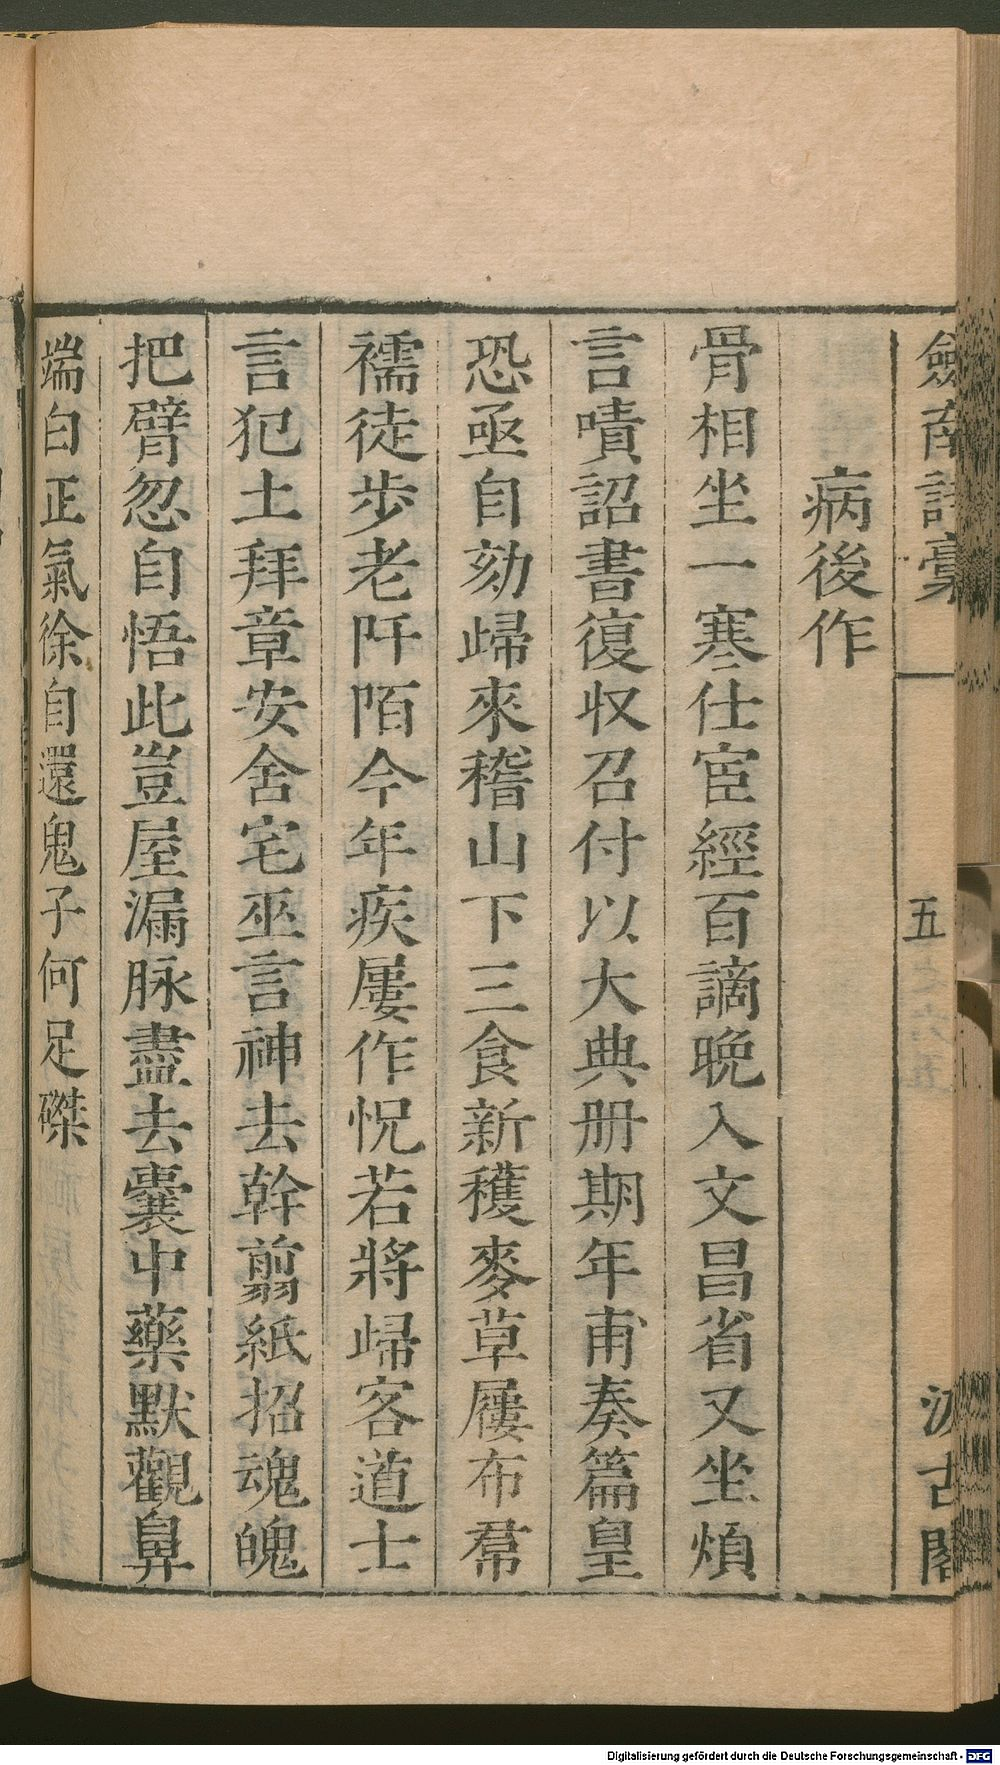 劒南詩稾
五
汲古閣
病後作
骨相坐一寒仕宦經百謫晚入文昌省又坐煩
言嘖詔書復收召付以大典册期年甫奏篇皇
恐亟自劾歸來稽山下三食新穫麥草屨布帬
襦徒步老阡陌今年疾屢作怳若將歸客道士
言犯土拜章安舍宅巫言神去幹翦紙招魂魄
把臂忽自悟此豈屋漏脉盡去囊中藥默觀鼻
端白正氣徐自還鬼子何足磔
Digitalisierung gefördert durch die Deutsche Forschungsgemeinschaft - DFG